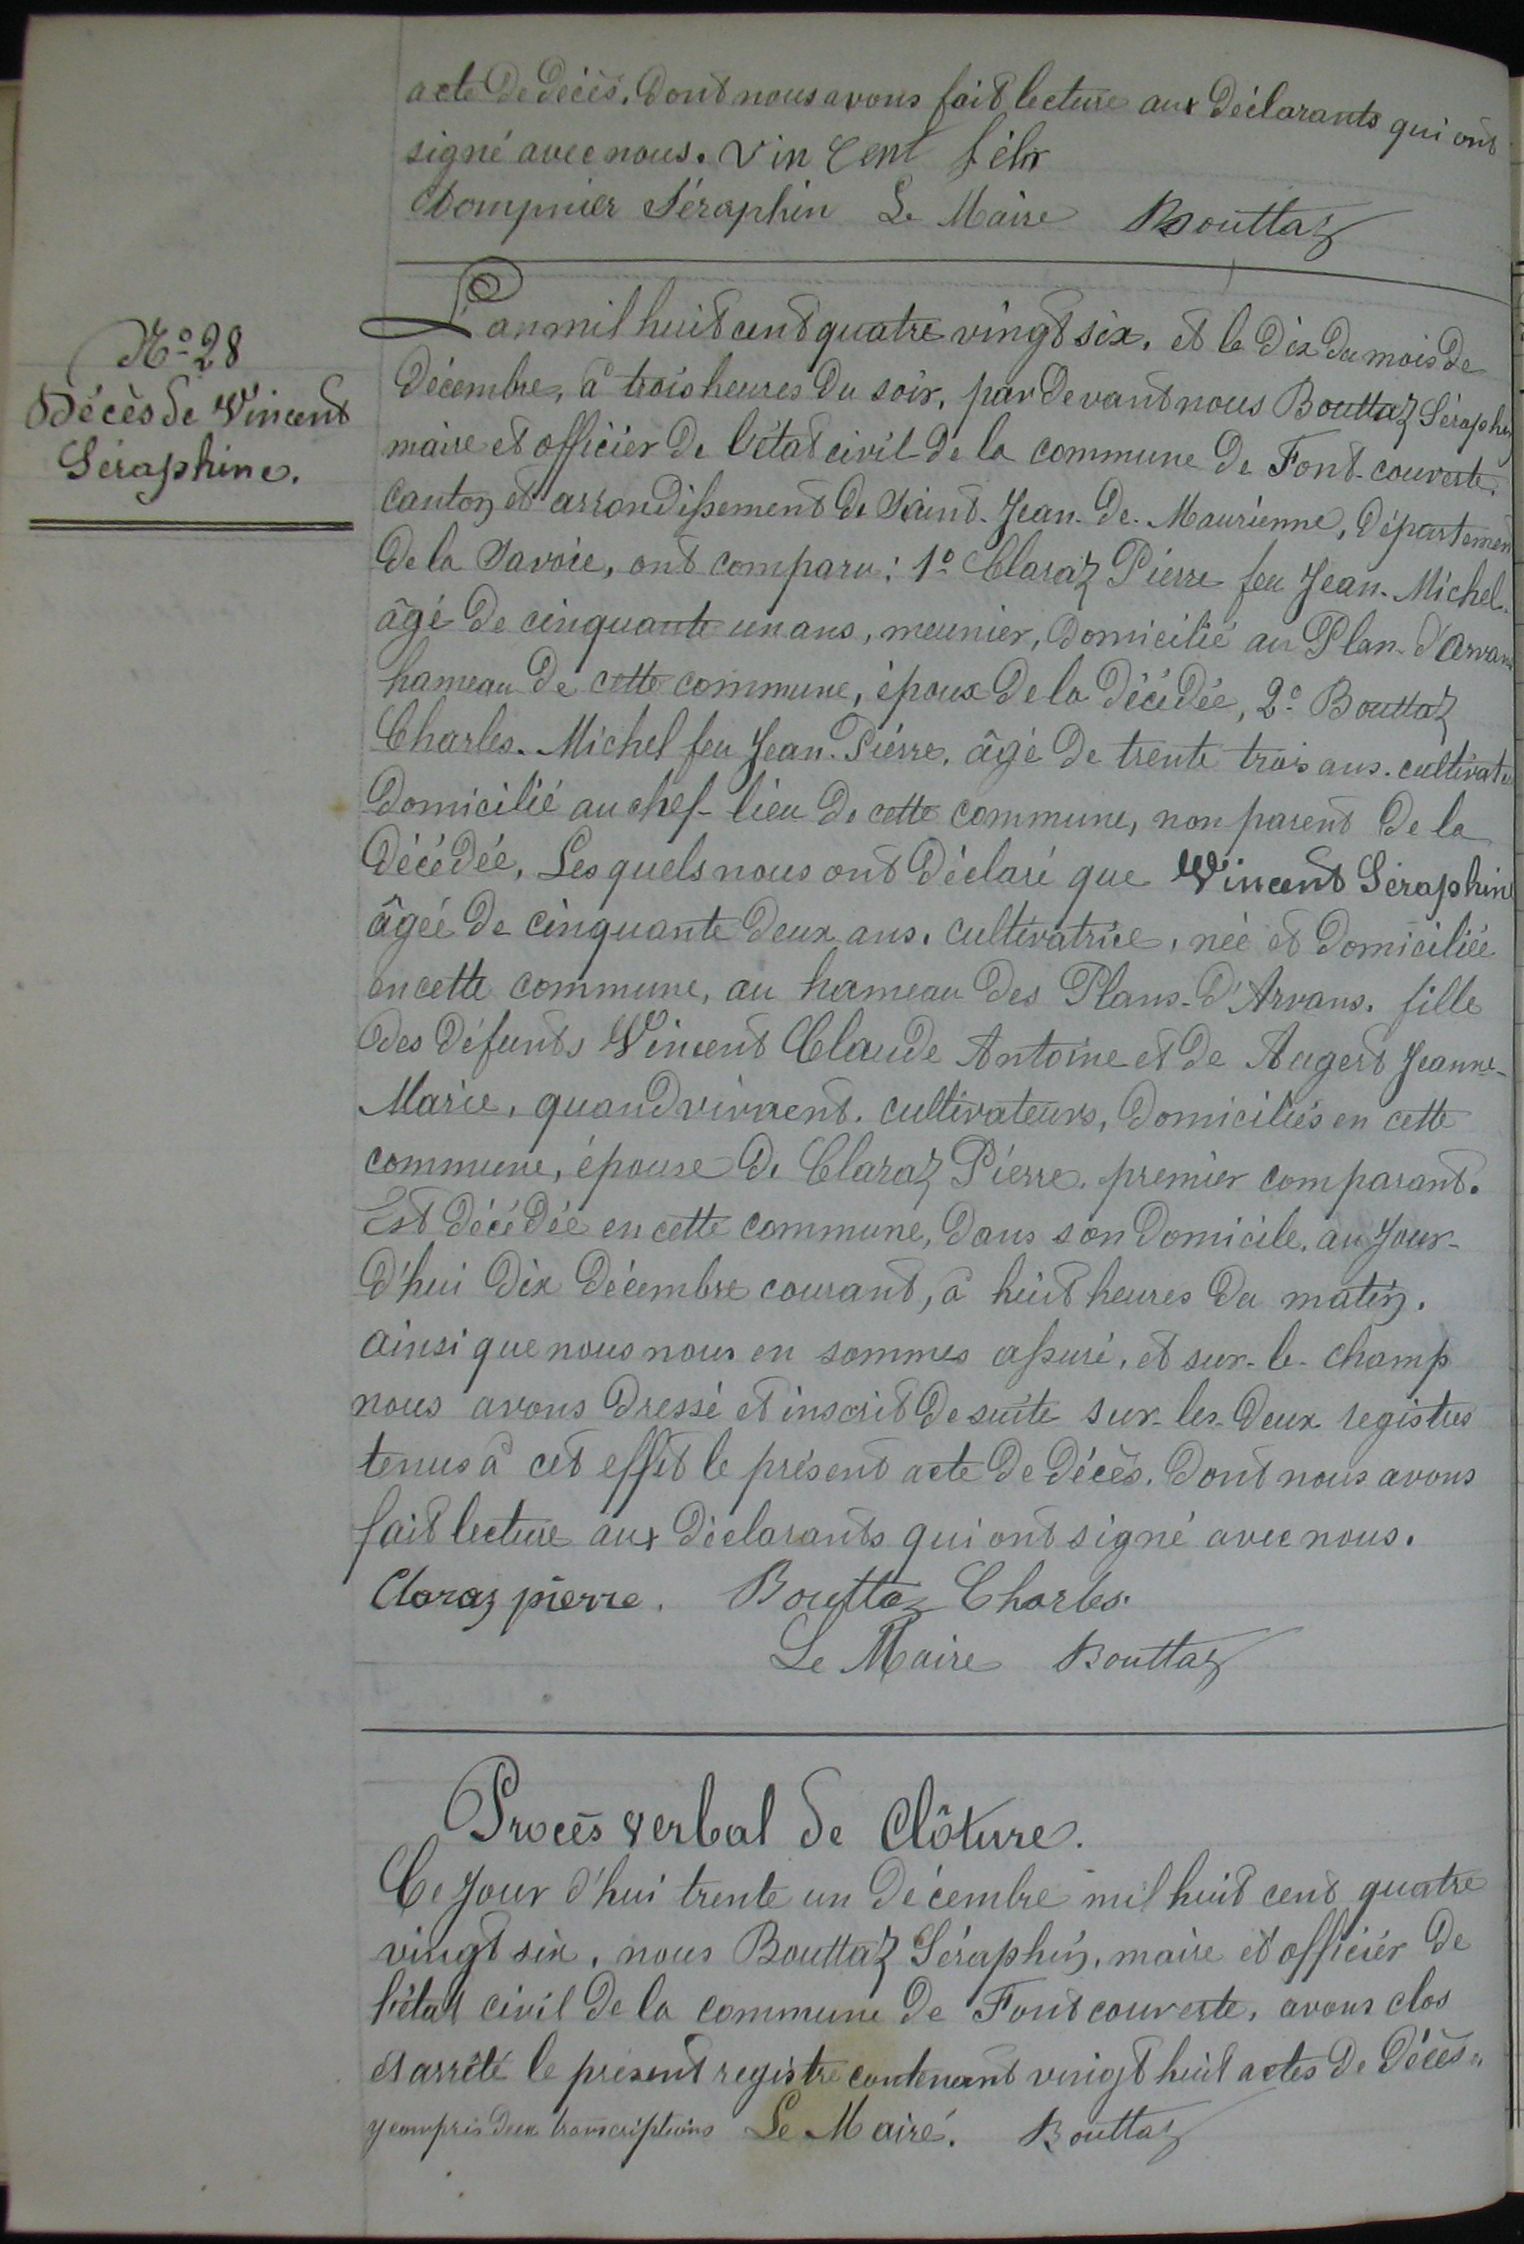 acte de décès. dont nous avons fait lecture aux déclarants qui ont
signé avec nous. Vincent félix
Dompnier Séraphin Le Maire Bouttaz
N° 28
Décès de Vincent
Séraphine.
L'an mil huit cent quatre vingt six, et le dix du mois de
décembre, à trois heures du soir, par devant nous Bouttaz Séraphin
maire et officier de l'état civil de la commune de Font-couverte,
canton et arrondissement de Saint-Jean-de-Maurienne, département
de la Savoie, ont comparu: 1° Claraz Pierre feu Jean-Michel.
âgé de cinquante un ans, meunier, domicilié au Plan-d'Arvans
hameau de cette commune, époux de la décédée, 2° Bouttaz
Charles-Michel feu Jean-Pierre, âgé de trente trois ans. cultivateur
domicilié au chef-lieu de cette commune, non parent de la
décédée, Lesquels nous ont déclaré que Vincent Séraphine
âgée de cinquante deux ans. cultivatrice, née et domiciliée
en cette commune, au hameau des Plans-d'Arvans. fille
des défunts Vincent Claude Antoine et de Augert Jeanne-
Marie, quand vivaient. cultivateurs, domiciliés en cette
commune, épouse de Claraz Pierre, premier comparant.
Est décédée en cette commune, dans son domicile, au jour-
d'hui dix décembre courant, à huit heures du matin.
ainsi que nous nous en sommes assuré, et sur-le-champ
nous avons dressé et inscrit de suite sur-les-deux registres
tenus à cet effet le présent acte de décès. dont nous avons
fait lecture aux déclarants qui ont signé avec nous.
Claraz pierre. Bouttaz Charles.
Le Maire Bouttaz
Procès verbal de Clôture.
Ce jour d'hui trente un décembre mil huit cent quatre
vingt six, nous Bouttaz Séraphin, maire et officier de
l'état civil de la commune de Fontcouverte, avons clos
et arrêté le présent registre contenant vingt huit actes de décès.
y compris deux transcriptions Le Maire. Bouttaz